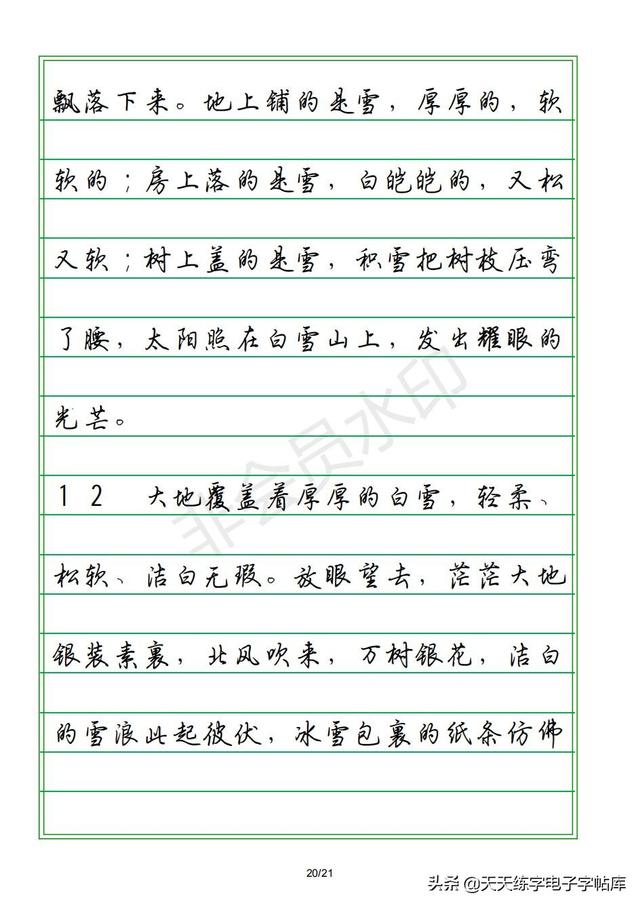 飘落下来。地上铺的是雪，厚厚的，软
软的；房上落的是雪，白皑皑的，又松
又软；树上盖的是雪，积雪把树枝压弯
了腰，太阳照在白雪山上，发出耀眼的
光芒。
12 大地覆盖着厚厚的白雪，轻柔、
松软、洁白无瑕。放眼望去，茫茫大地
银装素裹，北风吹来，万树银花，洁白
的雪浪此起彼伏，冰雪包裹的纸条仿佛
非会员水印
20/21
头条 @天天练字电子字帖库